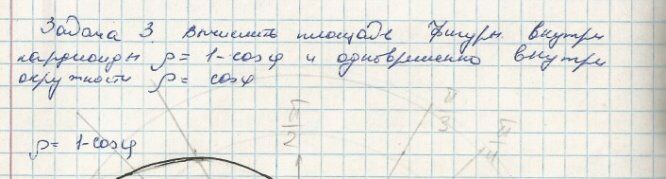 Задача 3. Вычислить площадь фигуры внутри
кардиоиды ρ = 1-cosφ и одновременно внутри
окружности ρ = cosφ
π/2
π/3
ρ = 1-cosφ